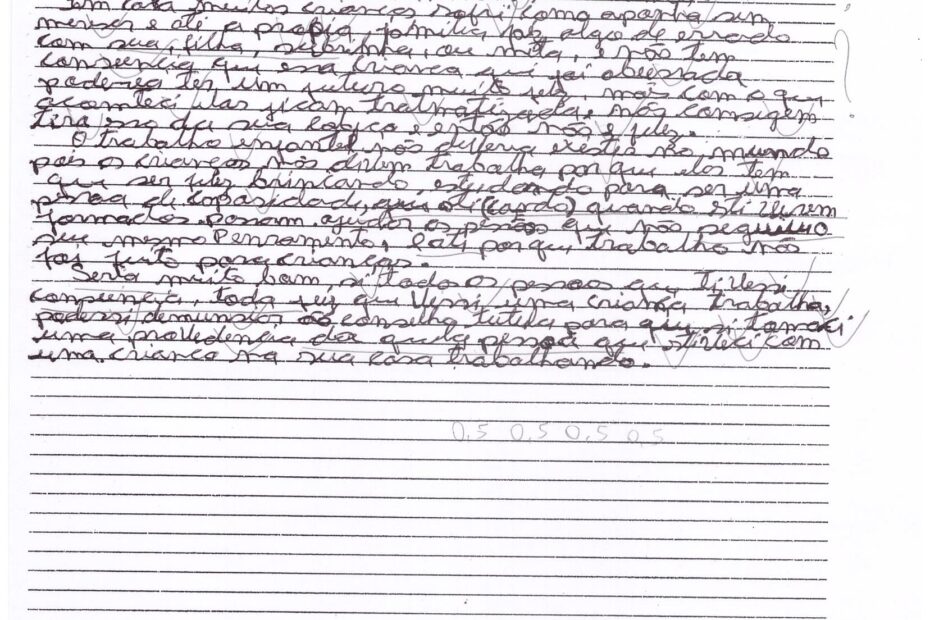 Tem casa muitos crianças sofri como apanha sim,
merser e ati a propia, familia faz algo de errado
com sua, filha, subrinha, ou nita, e não tem
consencia que esa criança qui foi abusada
poderea ter um futuro muito feliz, mais com o que
aconteci elas ficam tralmatizada, nós consigem
tira iso da sua logica e entao não e feliz.
O trabalho enfantel não diveria existir no mundo
pois os crianços nós divem trabalha por que elas tem
que ser feliz brincando, estudando para ser uma
pesoa de capasidade, que sti (cando) quando sti verem
formados posam ajudar os pesoas que nós seguimo
seu mesmo Penssamento, e ati porqui trabalho não
foi feito para crianças.
Seria muito bom, si todos os pesoas que Tivesi
consiencia, toda fez que Vessi uma criança trabalha,
podessi demunsiar ao conselho tutela para qui si tomaci
uma providencia da quela pessoa que stiveci com
uma criança na sua casa trabalhando.
0,5 0,5 0,5 0,5